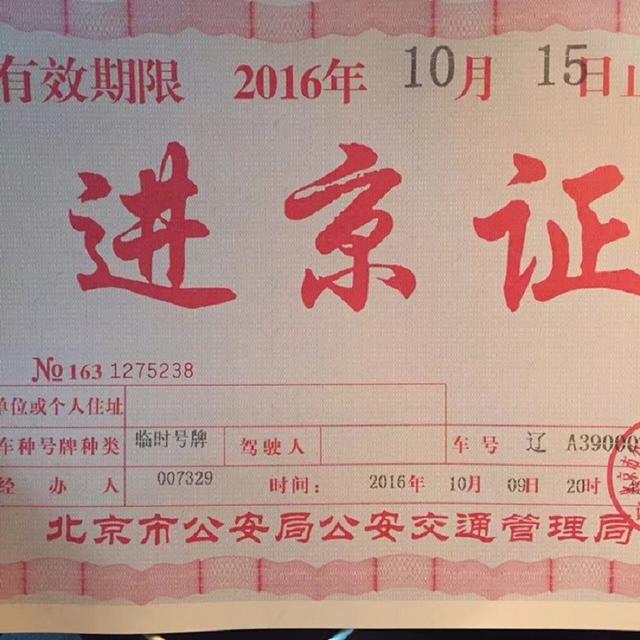 有效期限 2016年 10月 15日止
进京证
№ 163 1275238
单位或个人住址
车种号牌种类 临时号牌 驾驶人 车号 辽 A39000
经办人 007329 时间: 2016年 10月 09日 20时
北京市公安局公安交通管理局